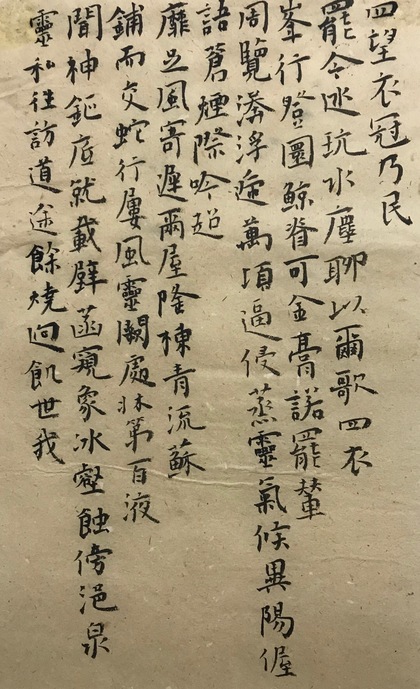 四望衣冠乃民
罷令逃玩水塵聊以爾歌四衣
峯行登圖鯨脊可金膏諾罷輦
周覽漭浮症萬頃逼侵蒸靈氣候異陽偓
語蒼煙際吟超
靡足風寄遲爾屋隆棟青流蘇
鋪而交蛇行屢風靈闕處牀第百液
闇神鉅底就載壁菡窺象冰壑蝕傍浥泉
靈私往訪道途餘燒迴飢世我